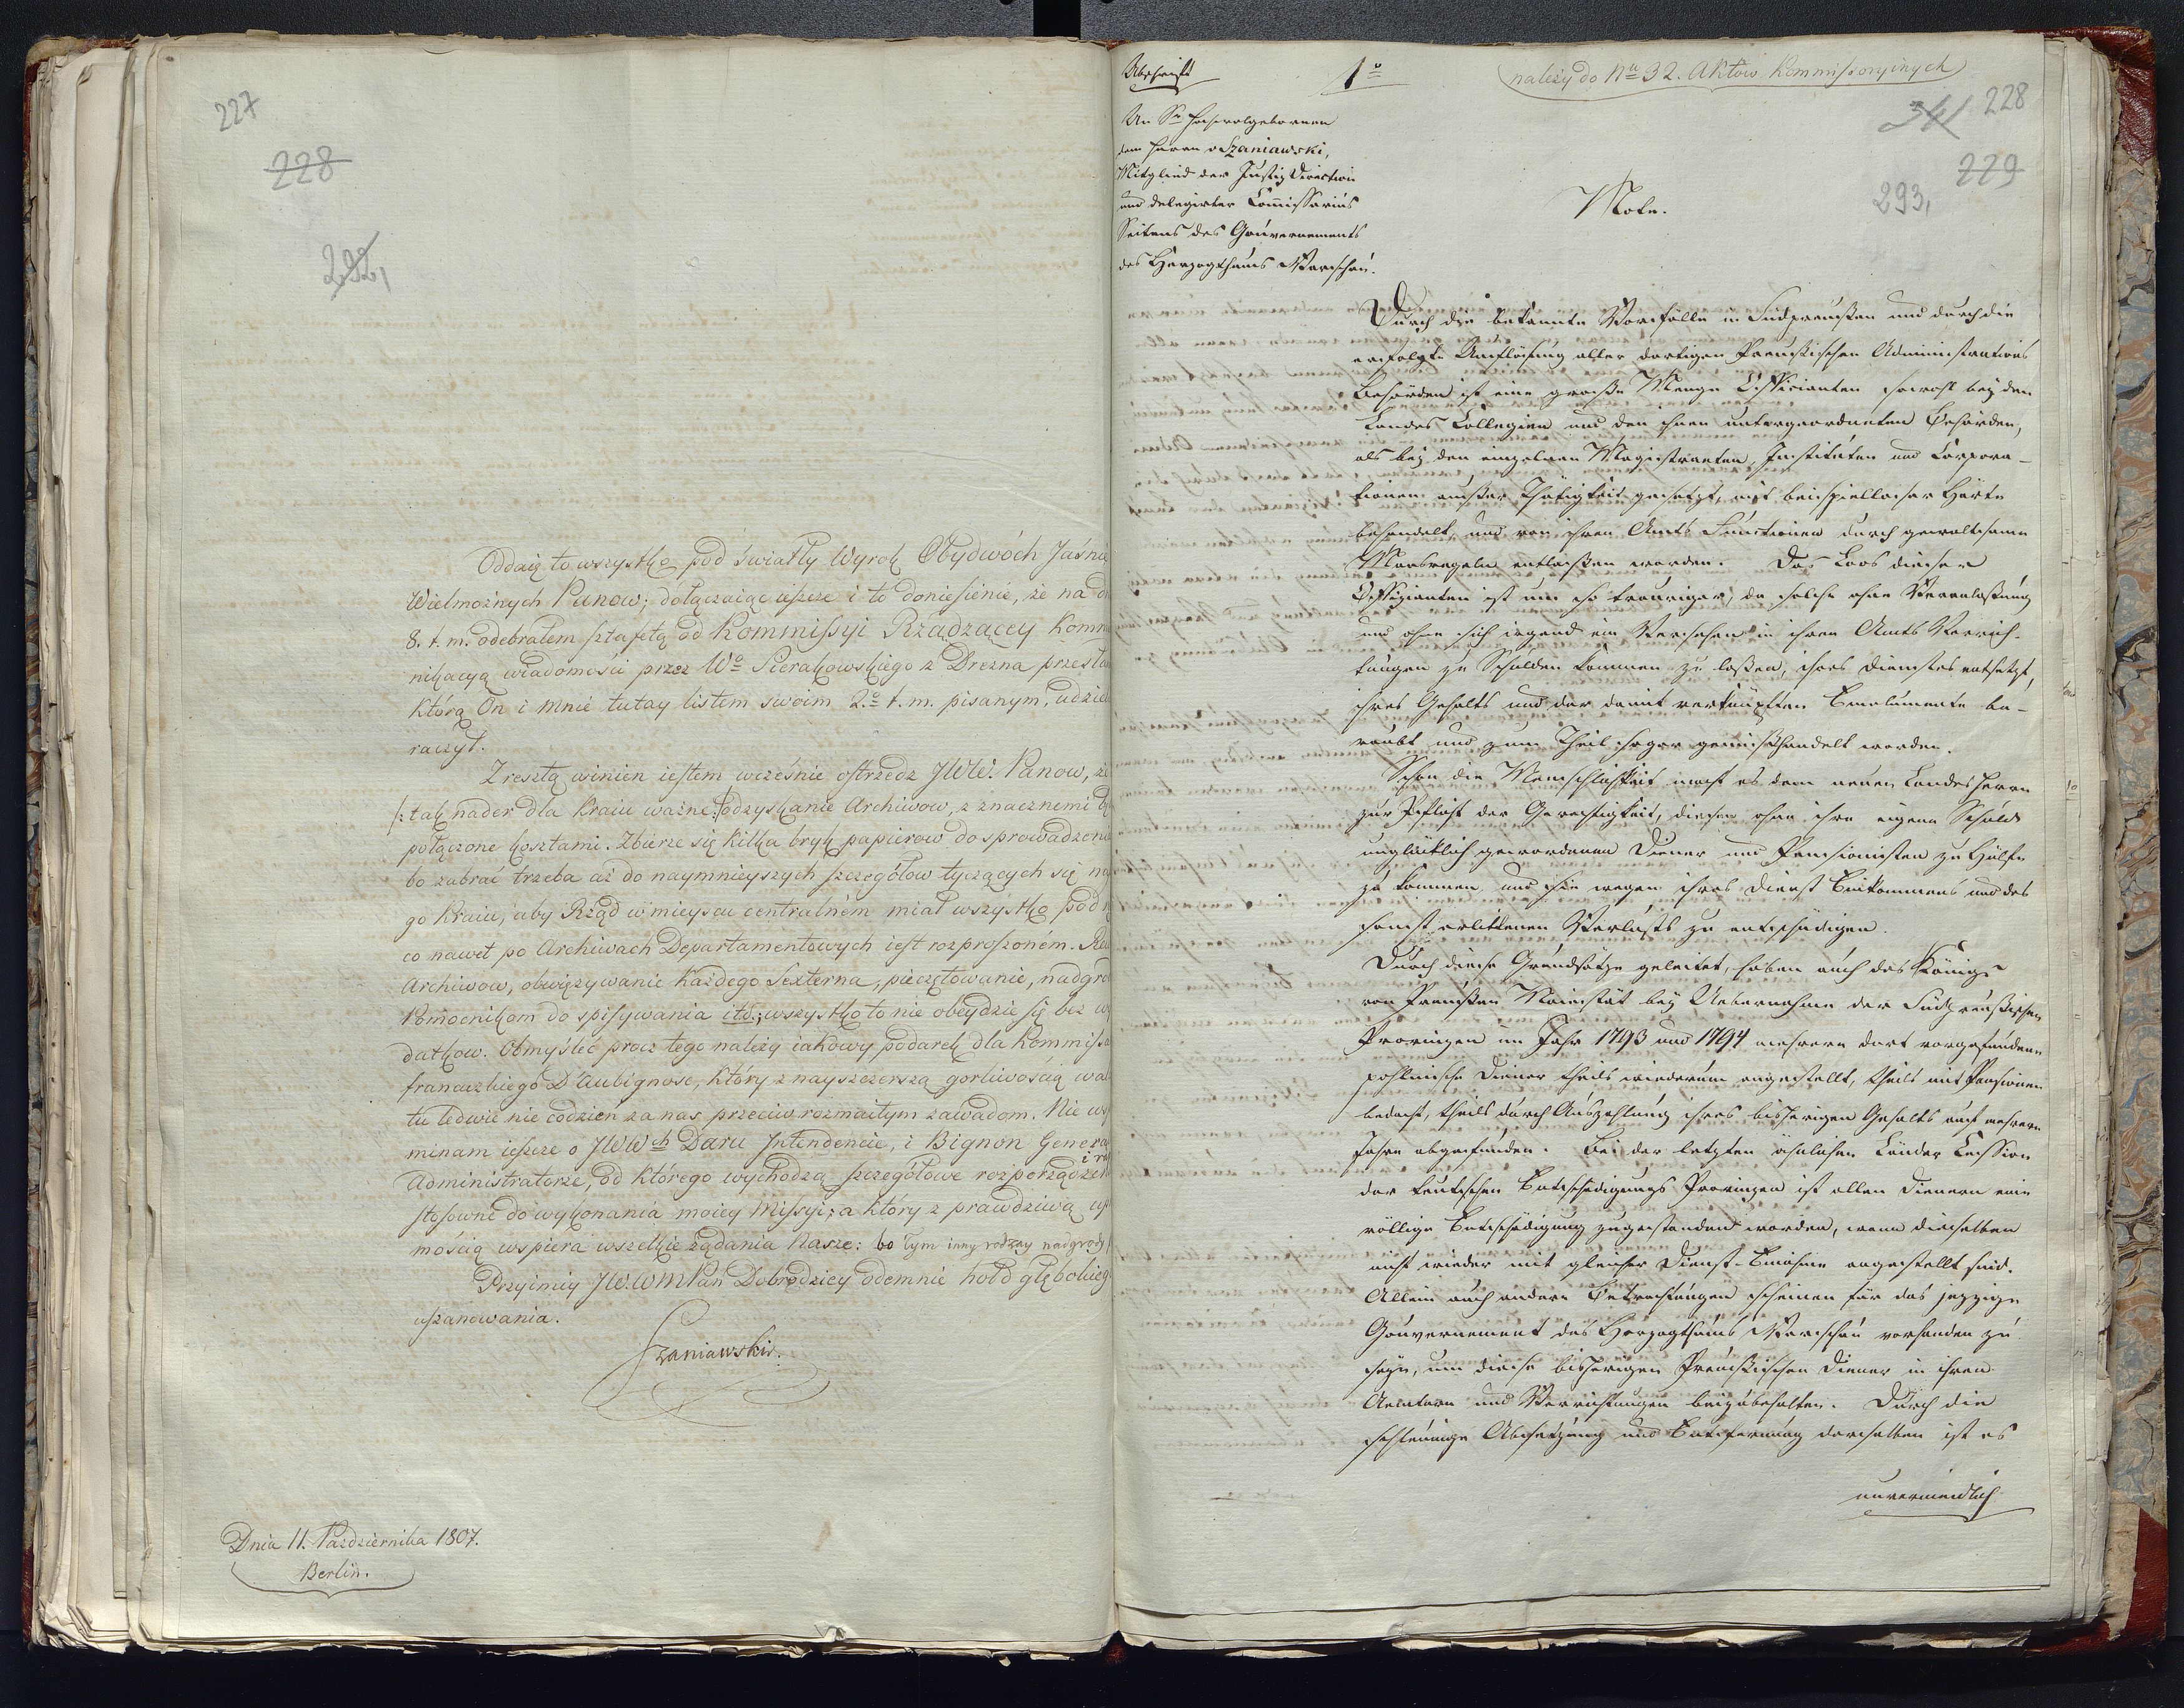 227
228
292,
Oddaię to wszystko pod światły Wyrok Obydwóch Jaśnie
Wielmożnych Panow; dołączaiąc ieszcze i to doniesienie, że na d
8. t. m. odebrałem sztafetą od Kommissyi Rządzącey Kommu
nikacyą wiadomości przez Wo Sierakowskiego z Drezna przesła
którą On i mnie tutay listem swoim 2.o t. m. pisanym, udziel
raczył.
Zresztą winien iestem wcześnie ostrzedz JWW. Panow, że
/: tak nader dla Kraiu ważne :/ odzyskanie Archiwow, z znacznemi
połączone kosztami. Zbierze się kilka bryk papierow do sprowadzenia
bo zabrać trzeba aż do naymnieyszych szczegółow tyczących się na
go Kraiu, aby Rząd w mieyscu centralném miał wszystko pod r
co nawet po Archiwach Departamentowych iest rozproszoném. Re
Archiwow, obwiązywanie każdego Sexterna, pieczętowanie, nadgro
Pomocnikom do spisywania itd.; wszystko to nie obeydzie się bez wy
datkow. Obmyśleć procz tego należy iakowy podarek dla Kommissa
francuzkiego D'Aubignosc, który z nayszczerszą gorliwością wal
tu ledwie nie codzien za nas przeciw rozmaitym zawadom. Nie ws
minam ieszcze o JWWch Daru Intendencie, i Bignon Genera
Administratorze, od którego wychodzą szczegółowe rozporządzen
i ra
stosowne do wykonania moiey Missyi; a który z prawdziwą up
mością wspiera wszelkie żądania Nasze: bo tym inny rodzay nadgrody
Przyimiy JW. WM Pan Dobrodziey odemnie hołd głębokieg
uszanowania.
Szaniawski.
Dnia 11. Października 1807.
Berlin.
Abschrift
1o
(należy do Nu 32. Aktów Kommissoryinych)
341 228
229
293,
An Sr Hochwolgebornen
dem Herrn v Szaniawski,
Mitglied der Justiz Direction
und delegirter Commissarius
Seitens des Gouvernements
des Herzogthums Warschau.
Note.
Durch die bekannte Vorfälle in Südpreußen und durch die
erfolgte Auflösung aller dortigen Preußischen Administrations
Behörden ist eine große Menge Officianten sowohl bey den
Landes Collegien und den ihnen untergeordneten Behörden,
als bey den einzelnen Magistraeten, Instituten und Corpora-
tionen außer Thätigkeit gesetzt, mit beispielloser Härte
behandelt, und von ihren Amts Functionen durch gewaltsame
Maasregeln entlassen worden. Das Loos dieser
Offizianten ist um so trauriger, da solche ohne Veranlaßung
und ohne sich irgend ein Versehen in ihren Amts Verrich-
tungen zu Schulden kommen zu laßen, ihres Dienstes entsetzt,
ihres Gehalts und der damit verknüpften Emolumente be-
raubt und zum Theil sogar gemishandelt worden.
Schon die Menschlichkeit macht es dem neuen Landesherrn
zur Pflicht der Gerechtigkeit, diesen ohne ihre eigene Schuld
unglücklich gewordenen Diener und Pensionisten zu Hülfe
zu kommen und sie wegen ihres Dienst Einkommens und des
sonst erlittenen Verlusts zu entschädigen.
Durch diese Grundsätze geleitet, haben auch des Königs
von Preußen Majestät bey Uebernahme der Südpreußischen
Provinzen im Jahr 1793 und 1794 mehrere dort vorgefundene
pohlnische Diener theils wiederum angestellt, theils mit Pensionen
bedacht, theils durch Auszahlung ihres bisherigen Gehalts auf mehrere
Jahre abgefunden. Bei der letzten ähnlichen Länder Cession
der teutschen Entschädigungs Provinzen ist allen Dienern eine
völlige Entschädigung zugestanden worden, wenn dieselben
nicht wieder mit gleicher Dienst-Einahme angestellt sind.
Allein auch andere Betrachtungen scheinen für das jezzige
Gouvernement des Herzogthums Warschau vorhanden zu
seyn, um diese bisherigen Preußischen Diener in ihren
Aemtern und Verrichtungen beizubehalten. Durch die
schleunige Absetzung und Entfernung derselben ist es
unvermeidlich